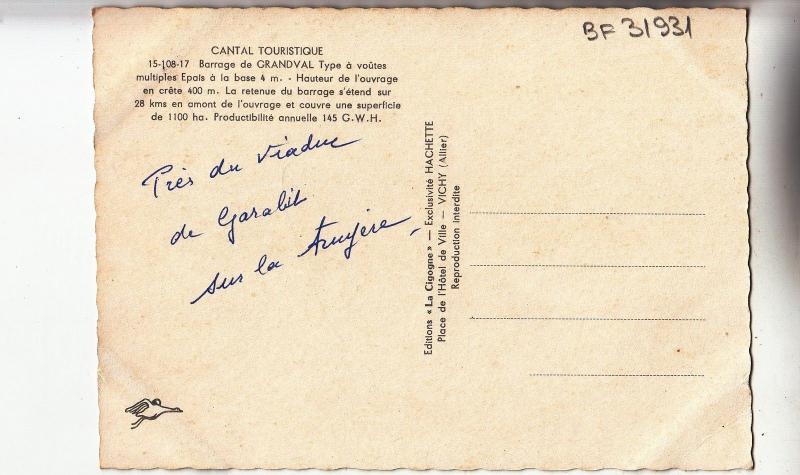 BF 31931
CANTAL TOURISTIQUE
15-108-17 Barrage de GRANDVAL Type à voûtes
multiples Epais à la base 4 m. - Hauteur de l'ouvrage
en crête 400 m. La retenue du barrage s'étend sur
28 kms en amont de l'ouvrage et couvre une superficie
de 1100 ha. Productibilité annuelle 145 G.W.H.
Près du Viaduc
de Garabit
sur la Truyère
Editions « La Cigogne » — Exclusivité HACHETTE
Place de l'Hôtel de Ville — VICHY (Allier)
Reproduction Interdite